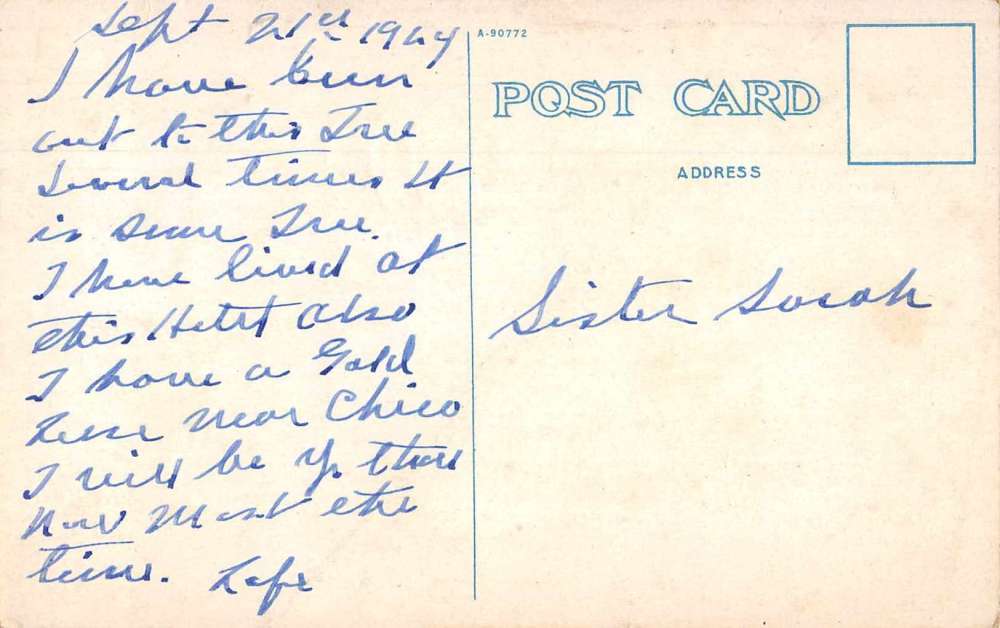 Sept 21st 1924
I have been
out to this Tree
Several times It
is some Tree.
I have lived at
this Hotel also
I have a Gold
Lese near Chico
I will be up there
now Most the
time. Lafe
A-90772
POST CARD
ADDRESS
Sister Sarah